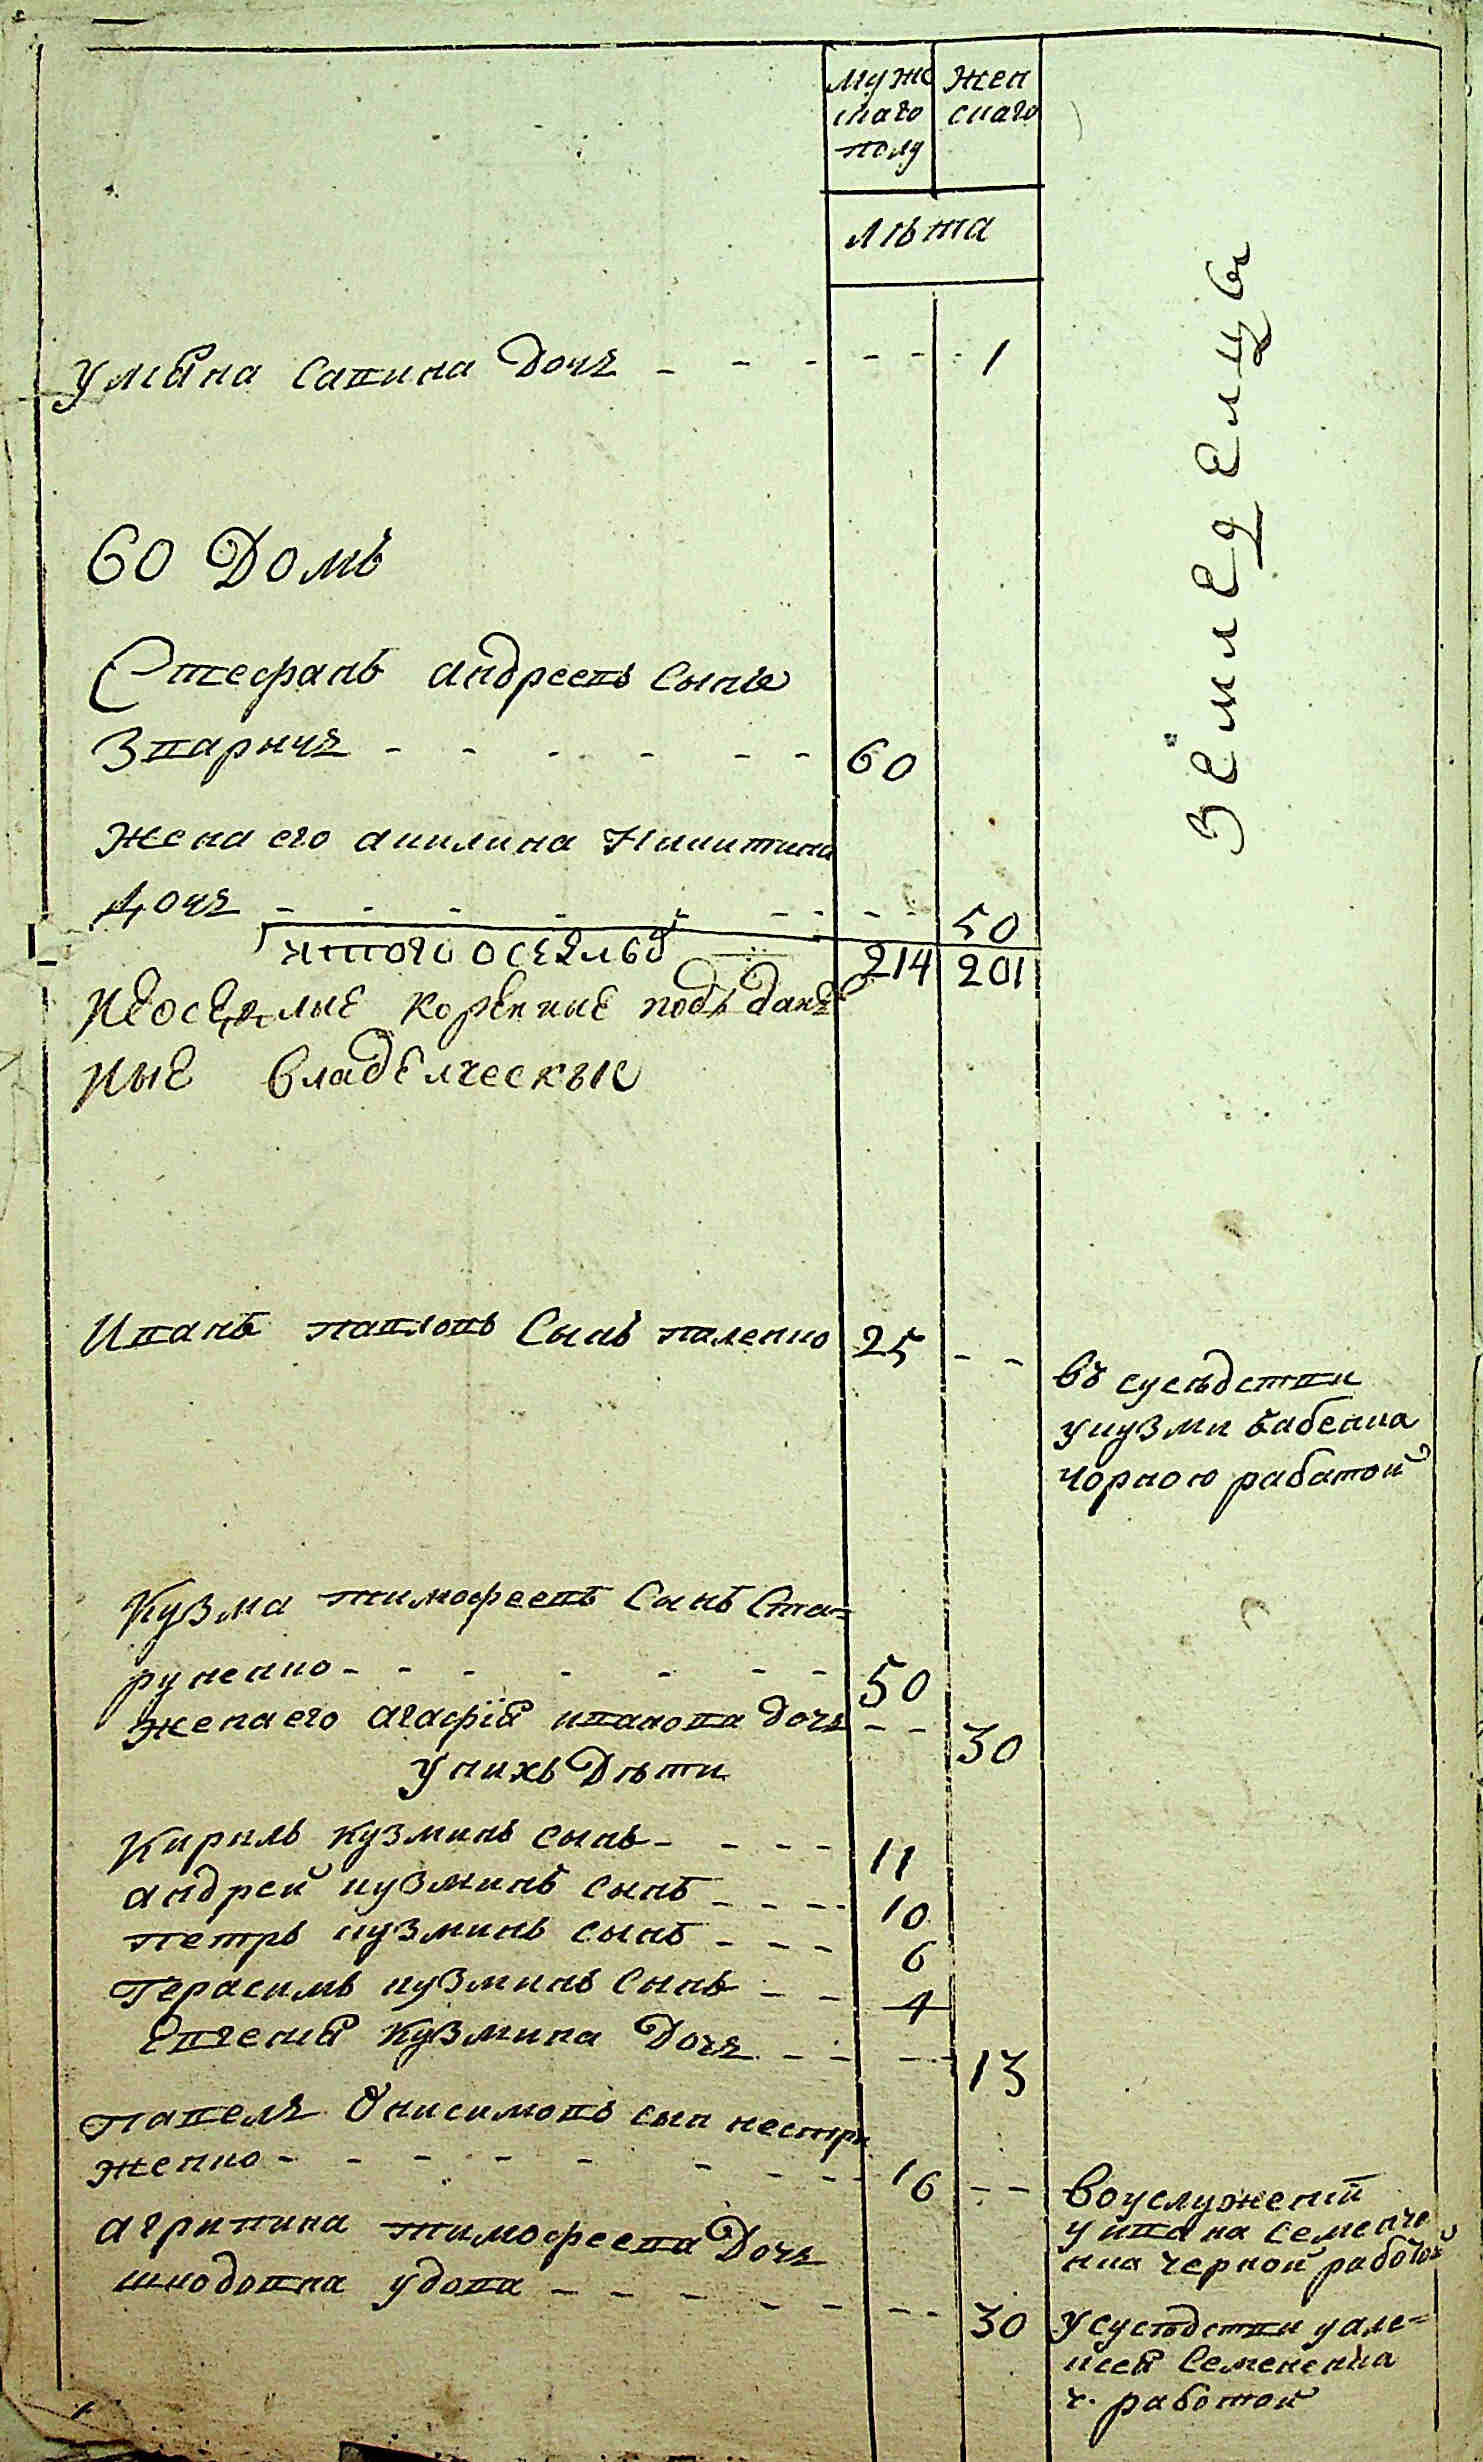 муже
скаго
полу
жен
скаго
лѣта
Земледелцы
Улыяна савина дочь - - - - - - 1
60 Домъ
Стефанъ андреевъ сынъ
Зварычь - - - - - - 60
жена его акилина Никитина
дочь - - - - - - - - 50
итого оседлыя 214 201
Неоседлые корѣнные подъдане
ные владелческые
Иванъ павловъ Сынъ паленко 25 - -
въ сусѣдстви
укузми бабенка
чорною работой
Кузма тимофеевъ Сынъ Ста=
рученко - - - - - - 50
жена его агафїя иванова дочь - - 30
У нихъ Дѣти
Кирилъ кузминъ сынъ - - - - 11
андрей кузминъ сынъ - - - - 10
петръ кузминъ сынъ - - - 6
Герасимъ кузминъ сынъ - - 4
Евгения кузмина Дочь - - - - 13
павелъ Онисимовъ сын нестри
женко - - - - - - - - 16 - -
воуслужении
у ивана семенче
нка черной работой
агрипина тимофеева Дочь
шкодовна удова - - - - - - - 30
У сусѣдстви уале=
ксея Семененка
ч. работой